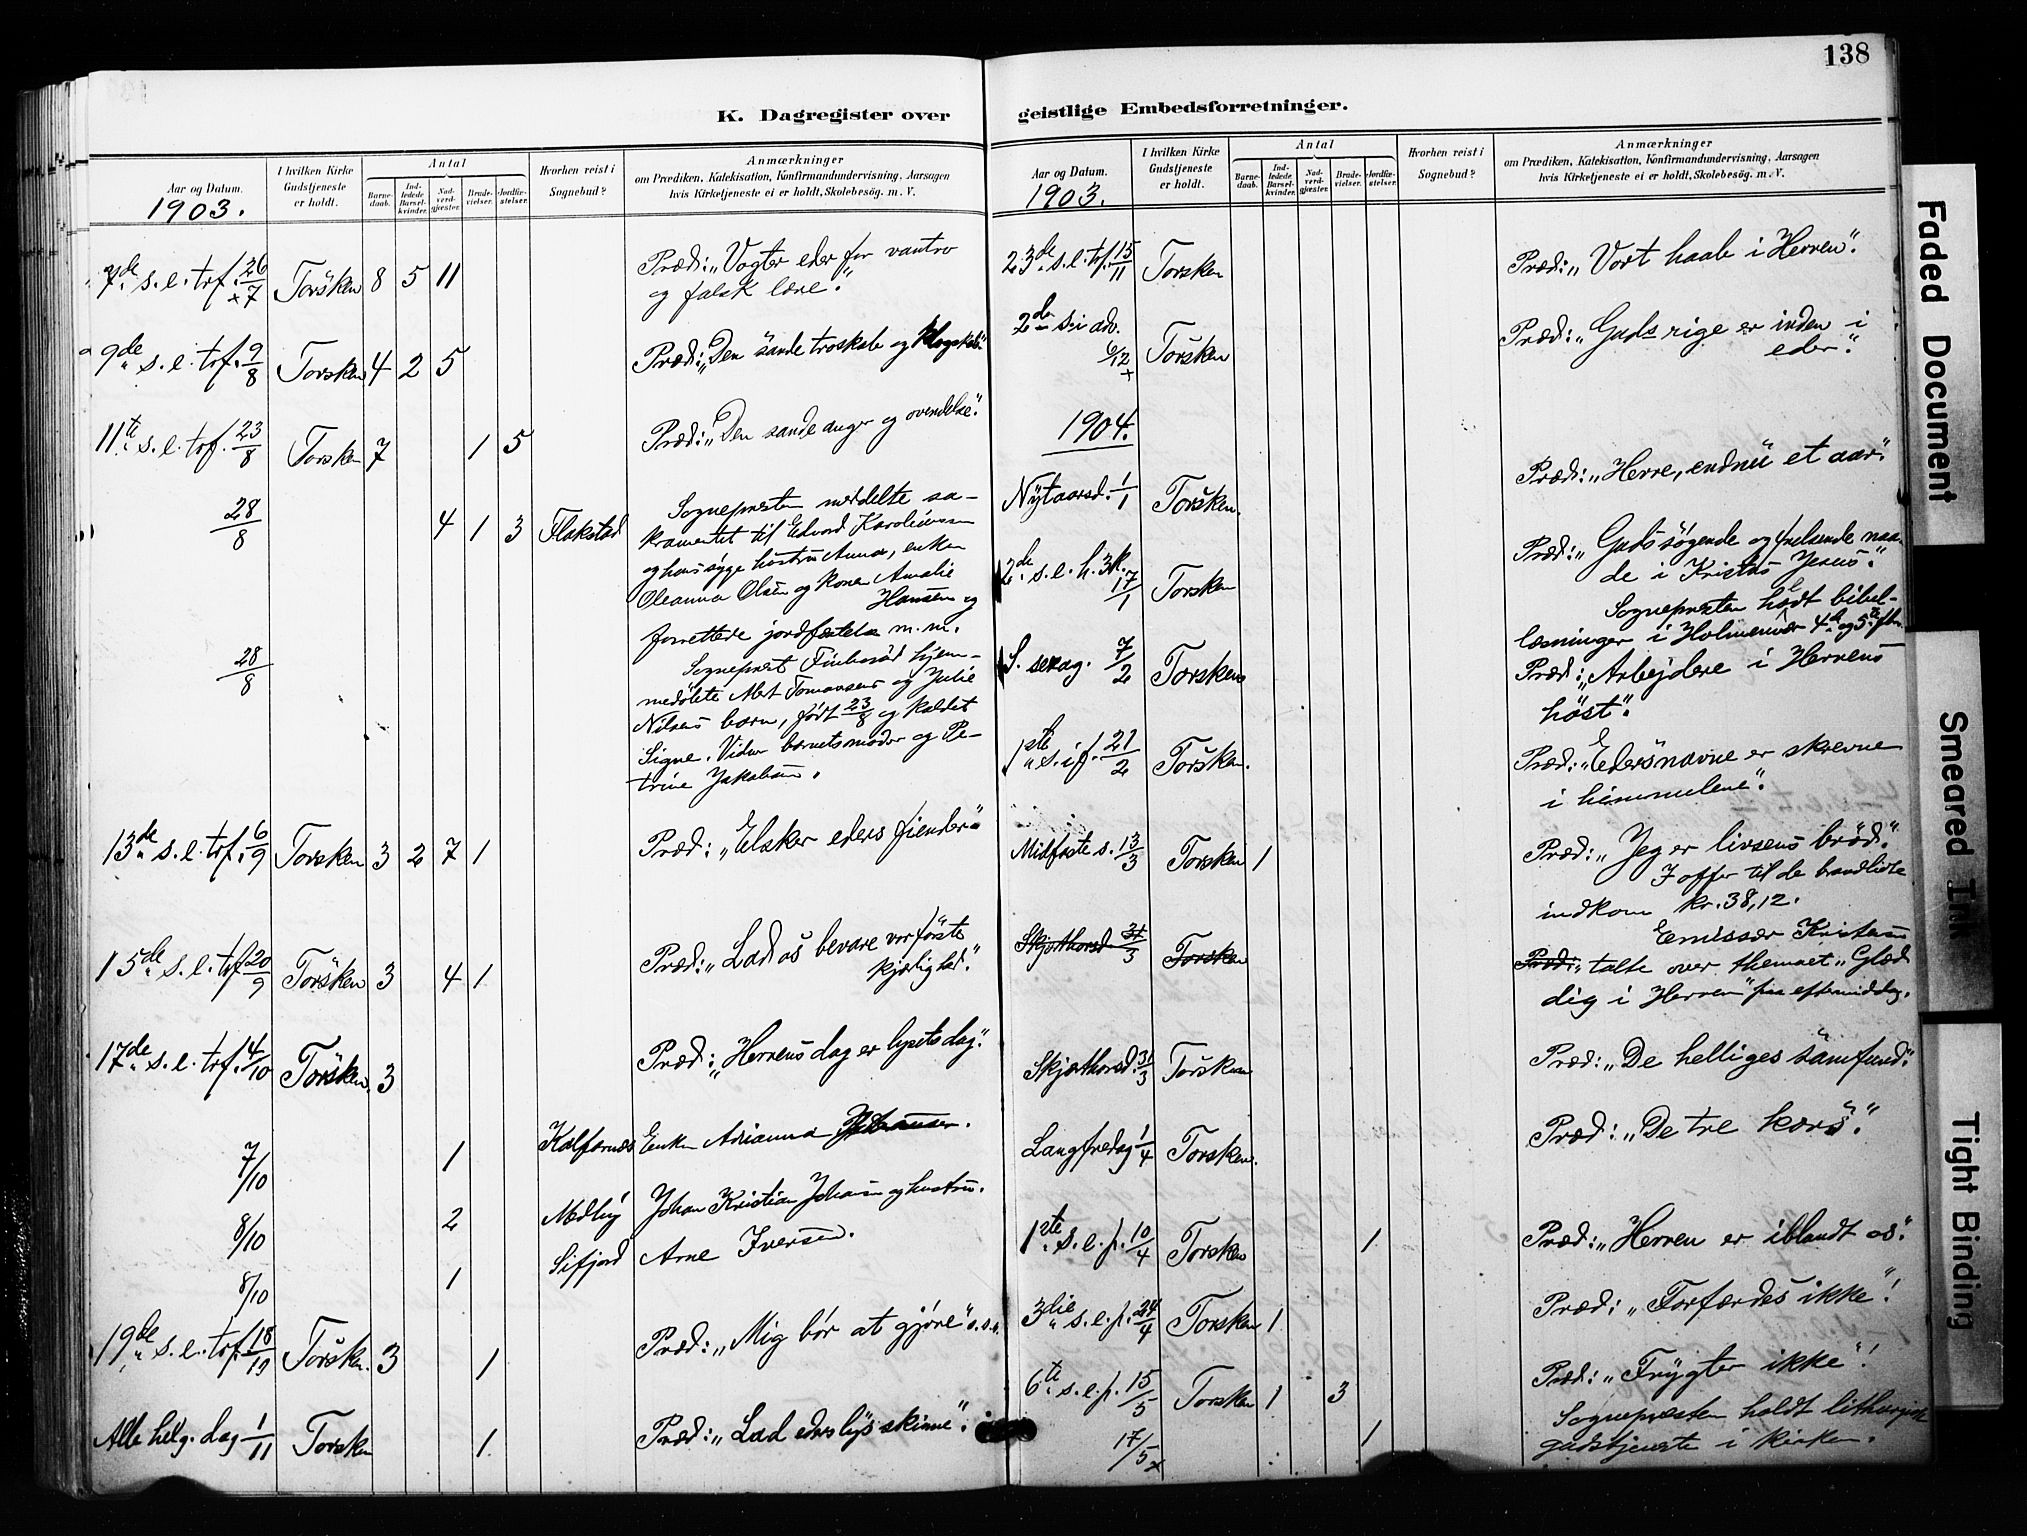 138
K. Dagregister over geistlige Embedsforretninger.
Aar og Datum.
1903.
I hvilken Kirke Gudstjeneste er holdt.
Antal
Barnedaab.
Indledede Barselkvinder.
Nadverdgjæster.
Brudevielser.
Jordfæstelser.
Hvorhen reist i Sognebud?
Anmærkninger
om Prædiken, Katekisation, Konfirmandundervisning, Aarsagen
hvis Kirketjeneste ei er holdt, Skolebesög. m. V.
7de s. e. trf. 26/7 Torsken 8 5 11 Præd: „Vogter eder for vantro
og falsk lære".
9de s. e. trf. 9/8 Torsken 4 2 5 Præd: „Den sande troskab og klogskab"
11te s. e. trf. 23/8 Torsken 7 1 5 Præd: „Den sande anger og
28/8 4 1 3 Flakstad Sognepresten meddelte sa-
kramentet til Edvard
og hans syge hustru Anna, enken
Oleanna Olsen og kona Amalie
Hansen og
forrettede jordfæstelse m.m.
28/8 Sogneprest hjem-
medøbte og Julie
Nilsens barn, født 23/8 og kaldet
Signe. Vidner barnets moder og Pe-
trine Jakobsen.
13de s. e. trf. 6/9 Torsken 3 2 7 1 Præd: „Elsker eders fiender"
15de s. e. trf. 20/9 Torsken 3 4 1 Præd: „Lad os bevare vor første
kjærlighed."
17de s. e. trf. 4/10 Torsken. 3 Præd: „Herrens dag er lysets dag".
7/10 1 Kalfarnes Enken Arianna
8/10 2 Medby Johan Kristian Johansen og hustru.
8/10 1 Sifjord Arne Iversen.
19de s. e. trf. 18/10 Torsken. 3 1 Præd: „Mig bør at gjøre" o.s.v.
Alle helg. dag 1/11 Torsken 1 Præd: „Lad eders lys skinne".
Aar og Datum.
1903.
I hvilken Kirke Gudstjeneste er holdt.
Antal
Barnedaab.
Indledede Barselkvinder.
Nadverdgjæster.
Brudevielser.
Jordfæstelser.
Hvorhen reist i Sognebud?
Anmærkninger
om Prædiken, Katekisation, Konfirmandundervisning, Aarsagen
hvis Kirketjeneste ei er holdt, Skolebesög. m. V.
23de s. e. trf. 15/11 Torsken Præd: „Vort haab i Herren".
2den s. i adv. 6/12 Torsken Præd: „Guds rige er inden i
eder".
1904.
Nytaarsd. 1/1 Torsken. Præd: „Herre, endnu et aar".
2de s. e. h. 3k. 17/1 Torsken Præd: „Guds søgende og frelsende naa-
de i Kristus Jesus".
Sognepresten holdt bibel-
læsninger i Holmenvær 4de og 5te febr.
S. sexag. 7/2 Torsken Præd: „Arbejdere i Herrens
høst".
1ste s. i f. 21/2 Torsken. Præd: „Eders navne er skrevne
i himmelene".
Midfaste s. 13/3 Torsken 1 Præd: „Jeg er livsens brød".
I offer til de brandlidte
indkom kr. 38,12.
Skjærthorsd. 31/3 Torsken Emissær Kristensen
Præd: „talte over themaet „Glæd
dig i Herren" paa eftermiddag.
Skjærthorsd. 31/3 Torsken Præd: „De helliges samfund".
Langfredag 1/4 Torsken. Præd: „De tre kors".
1ste s. e. p. 10/4 Torsken 1 Præd: „Herren er iblandt os".
3die s. e. p. 24/4 Torsken 1 Præd: „Forfærdes ikke"!
6te s. e. p. 15/5 Torsken 1 3 Præd: „Frygter ikke"!
17/5 1 Sognepresten holdt lithurgisk
gudstjeneste i kirken.
Faded Document
Smeared Ink
Tight Binding